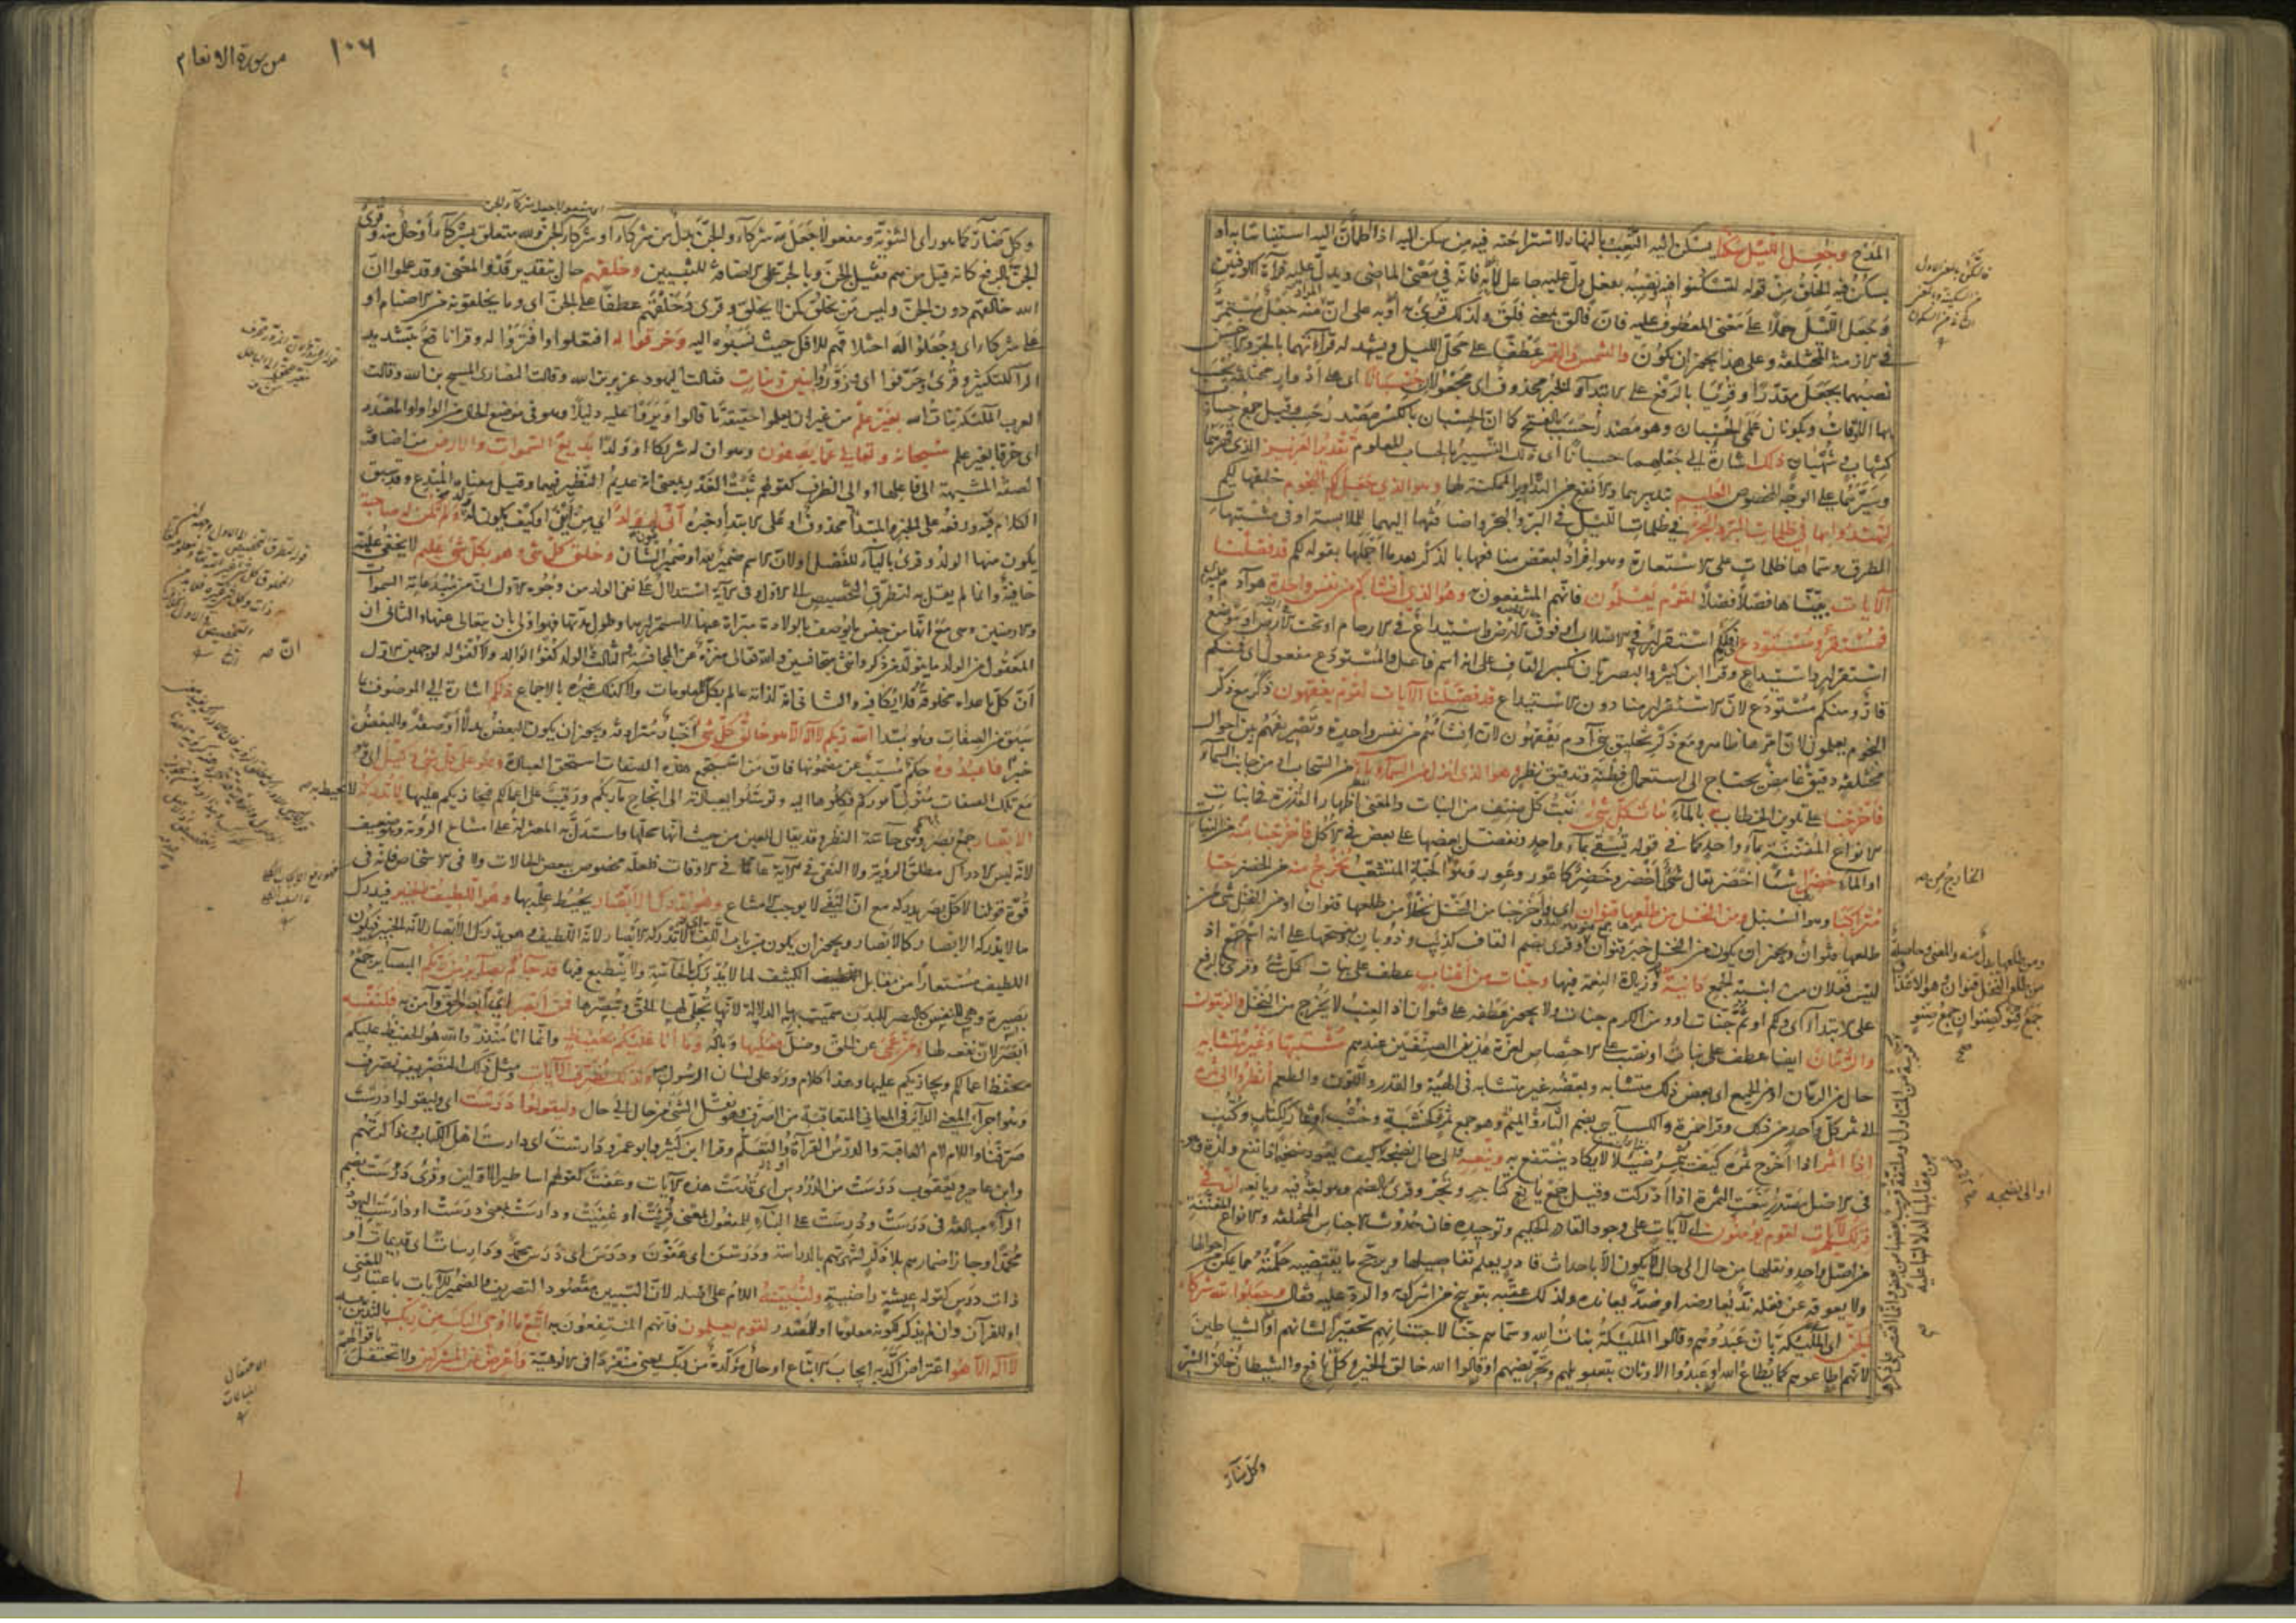 المدح وجعل الليل سكنا يسكن اليه التعب بالنهار لاستراحته فيه من سكن اليه اذا اطمأن اليه استيناسا به او
يسكن فيه الخلق من قوله لتسكنوا فيه ونصبه بفعل دل عليه جاعل لا به فانه في معنى الماضي ويدل عليه قراءة الكوفيين
وجعل الليل حملا على معنى المعطوف عليه فان فالق بمعنى فلق ولذلك قرئ به او به على ان المراد منه جعل مستمر
في الازمنة المختلفة وعلى هذا يجوز ان يكون والشمس والقمر عطفا على محل الليل ويشهد له قراءتهما بالجر والاحسن
نصبهما بجعل مقدرا وقرئا بالرفع على الابتداء والخبر محذوف اى مجعولان حسبانا اى على ادوار مختلفة يحسب
بهما الاوقات ويكونان علمي الحسبان وهو مصدر حسب بالفتح كما ان الحسبان بالكسر مصدر حسب وقيل جمع حساب
كشهاب وشهبان ذلك اشارة الى جعلهما حسبانا اى ذلك التسيير بالحساب المعلوم تقدير العزيز الذي قهرهما
وسيرهما على الوجه المخصوص العليم بتدبيرهما والانفع من التداوير الممكنة لهما وهو الذي جعل لكم النجوم خلقها لكم
لتهتدوا بها في ظلمات البر والبحر في ظلمات الليل في البر والبحر واضافتها اليهما للملابسة او في مشتبهات
الطرق وسماها ظلمات على الاستعارة وهو افراد لبعض منافعها بالذكر بعد ما اجملها بقوله لكم قد فصلنا
الآيات بيناها فصلا فصلا لقوم يعلمون فانهم المنتفعون به وهو الذي انشأكم من نفس واحدة هو آدم عليه
فمستقر ومستودع فلكم استقرار في الاصلاب او فوق الارض واستيداع في الارحام او تحت الارض او موضع
استقرار واستيداع وقرأ ابن كثير والبصريان بكسر القاف على انه اسم فاعل والمستودع مفعول اى فمنكم
قار ومنكم مستودع لان الاستقرار منا دون الاستيداع قد فصلنا الآيات لقوم يفقهون ذكر مع ذكر
النجوم يعلمون لان امرها ظاهر ومع ذكر تخليق بني آدم يفقهون لان انشاءهم من نفس واحدة وتصريفهم بين احوال
مختلفة دقيق غامض يحتاج الى استعمال فطنة وتدقيق نظر وهو الذي انزل من السماء ماء من السحاب او من جانب السماء
فاخرجنا على تلوين الخطاب به بالماء نبات كل شيء نبت كل صنف من النبات والمعنى اظهار القدرة في انبات
الانواع المفننة بماء واحد كما في قوله يسقى بماء واحد ونفضل بعضها على بعض في الاكل فاخرجنا منه من النبات
او الماء خضرا شيئا اخضر يقال شيء اخضر وخضر كاعور وعور وهو الخارج من الحبة المتشعب نخرج منه من الخضر حبا
متراكبا وهو السنبل ومن النخل من طلعها قنوان اى واخرجنا من النخل نخلا من طلعها قنوان او من النخل شيء من
طلعها قنوان ويجوز ان يكون من النخل خبر قنوان وقرئ بضم القاف كذئب وذوبان وبفتحها على انه اسم جمع اذ
ليس فعلان من ابنية الجمع دانية وزيادة النعمة فيها وجنات من اعناب عطف على نبات كل شيء وقرئ بالرفع
على الابتداء اى ولكم او ثم جنات او ومن الكرم جنات ولا يجوز عطفه على قنوان اذ العنب لا يخرج من النخل والزيتون
والرمان ايضا عطف على نبات او نصب على الاختصاص لعزة هذين الصنفين عندهم مشتبها وغير متشابه
حال من الرمان او من الجميع اى بعض ذلك متشابه وبعضه غير متشابه في الهيئة والقدر واللون والطعم انظروا الى ثمره
الى ثمر كل واحد من ذلك وقرأ حمزة والكسائي بضم الثاء والميم وهو جمع ثمرة كخشبة وخشب او ثمار ككتاب وكتب
اذا اثمر اذا اخرج ثمره كيف يثمر ضئيلا لا يكاد ينتفع به وينعه الى حال نضجه كيف يعود ضخيما ذا نفع ولذة وهو
في الاصل مصدر ينعت الثمرة اذا ادركت وقيل جمع يانع كتاجر وتجر وقرئ بالضم وهو لغة فيه ويانعه ان في
ذلكم لآيات لقوم يؤمنون اى لآيات على وجود القادر الحكيم وتوحيده فان حدوث الاجناس المختلفة والانواع المفننة
من اصل واحد ونقلها من حال الى حال لا يكون الا باحداث قادر يعلم تفاصيلها ويرجح ما يقتضيه حكمته مما يمكن من احوالها
ولا يعوقه عن فعله ند يعارضه او ضد يعانده ولذلك عقبه بتوبيخ من اشرك به والرد عليه فقال وجعلوا لله شركاء
الجن اى الملائكة بان عبدوهم وقالوا الملائكة بنات الله وسماهم جنا لاجتنانهم تحقيرا لشانهم او الشياطين
لانهم اطاعوهم كما يطاع الله او عبدوا الاوثان بتسويلهم وتحريضهم او قالوا الله خالق الخير وكل نافع والشيطان خالق الشر
وكل ضار
الخارج من
او الى نضيجه
ومن طلعها بدل منه والمعنى وحاصلة
من طلع النخل قنوان وهو الاعذاق
جمع قنو كصنوان جمع صنو
صح
من سورة الانعام
١٠٦
وكل ضار كما هو رأى الثنوية ومفعولا جعل لله شركاء والجن بدل من شركاء او شركاء الجن ولله متعلق بشركاء او حال منه وقرئ
الجن بالرفع كانه قيل من هم فقيل الجن وبالجر على الاضافة للتبيين وخلقهم حال بتقدير قد والمعنى وقد علموا ان
الله خالقهم دون الجن وليس من يخلق كمن لا يخلق وقرئ وخلقهم عطفا على الجن اى وما يخلقونه من الاصنام او
على شركاء اى وجعلوا له اختلاقهم للافك حيث نسبوه اليه وخرقوا له افتعلوا وافتروا له وقرأ نافع بتشديد
الراء للتكثير وقرئ وحرفوا اى وزوروا بنين وبنات فقالت اليهود عزير ابن الله وقالت النصارى المسيح ابن الله وقالت
العرب الملائكة بنات الله بغير علم من غير ان يعلموا حقيقة ما قالوا ويروا عليه دليلا وهو في موضع الحال من الواو او المصدر
اى خرقا بغير علم سبحانه وتعالى عما يصفون وهو ان له شريكا او ولدا بديع السموات والارض من اضافة
الصفة المشبهة الى فاعلها او الى الظرف كقولهم ثبت الغدر بمعنى انه عديم النظير فيهما وقيل معناه المبدع وقد سبق
الكلام فيه ورفعه على الخبر والمبتدأ محذوف او على الابتداء وخبره انى يكون له ولد اى من اين او كيف يكون له ولد ولم تكن له صاحبة
يكون منها الولد وقرئ بالياء للفصل او لان الاسم ضمير الله او ضمير الشان وخلق كل شيء وهو بكل شيء عليم لا يخفى عليه
خافية وانما لم يقل به لتطرق التخصيص الى الاول وفي الآية استدلال على نفى الولد من وجوه الاول ان من مبدعاته السموات
والارضين وهي مع انها من جنس ما يوصف بالولادة مبرأة عنها لاستمرارها وطول مدتها فهو اولى بان يتعالى عنها والثاني ان
المعقول من الولد ما يتولد من ذكر وانثى متجانسين والله تعالى منزه عن المجانسة والثالث ان الولد كفؤ الوالد ولا كفؤ له لوجهين الاول
ان كل ما عداه مخلوقه فلا يكافئه والثاني انه لذاته عالم بكل المعلومات ولا كذلك غيره بالاجماع ذلكم اشارة الى الموصوف بما
سبق من الصفات وهو مبتدا الله ربكم لا اله الا هو خالق كل شيء اخبار مترادفة ويجوز ان يكون البعض بدلا او صفة والبعض
خبرا فاعبدوه حكم مسبب عن مضمونها فان من استجمع هذه الصفات استحق العبادة وهو على كل شيء وكيل اى وهو
مع تلك الصفات متولى اموركم فكلوها اليه وتوسلوا بعبادته الى انجاح مآربكم ورقيب على اعمالكم فيجازيكم عليها لا تدركه لا يحيط به
الابصار جمع بصر وهي حاسة النظر وقد يقال للعين من حيث انها محلها واستدل به المعتزلة على امتناع الرؤية وهو ضعيف
لانه ليس الادراك مطلق الرؤية ولا النفى في الآية عاما في الاوقات فلعله مخصوص ببعض الحالات ولا في الاشخاص فانه في
قوة قولنا لا كل بصر يدركه مع ان النفى لا يوجب الامتناع وهو يدرك الابصار يحيط علمه بها وهو اللطيف الخبير فيدرك
ما لا يدركه الابصار كالابصار ويجوز ان يكون من باب اللف اى لا تدركه الابصار لانه اللطيف وهو يدرك الابصار لانه الخبير فيكون
اللطيف مستعارا من مقابل الكثيف لما لا يدرك بالحاسة ولا ينطبع فيها قد جاءكم بصائر من ربكم البصاير جمع
بصيرة وهي للنفس كالبصر للبدن سميت بها الدلالة لانها تجلى لها الحق وتبصرها فمن ابصر اى ابصر الحق وآمن به فلنفسه
ابصر لان نفعه لها ومن عمى عن الحق وضل فعليها وباله وما انا عليكم بحفيظ وانما انا منذر والله هو الحفيظ عليكم
يحفظ اعمالكم ويجازيكم عليها وهذا كلام ورد على لسان الرسول وكذلك نصرف الآيات ومثل ذلك التصريف نصرف
وهو اجراء المعنى الدائر في المعاني المتعاقبة من الصرف وهو نقل الشيء من حال الى حال وليقولوا درست اى وليقولوا درست
صرفنا واللام لام العاقبة والدرس القراءة والتعلم وقرأ ابن كثير وابو عمرو دارست اى دارست اهل الكتاب وذاكرتهم
وابن عامر ويعقوب درست من الدروس اى قدمت هذه الآيات وعفت كقولهم اساطير الاولين وقرئ درست بضم
الراء مبالغة في درست ودرست على البناء للمفعول بمعنى قرئت او عفيت ودارست بمعنى درست او دارست اليهود
محمدا وجاز اضمارهم بلا ذكر لشهرتهم بالدراسة ودرسن اى عفون ودرس اى درس محمد ودارسات اى قديمات او
ذات درس كقوله عيشة راضية ولنبينه اللام على اصله لان التبيين مقصود التصريف والضمير للآيات باعتبار المعنى
او للقرآن وان لم يذكر لكونه معلوما او للمصدر لقوم يعلمون فانهم المنتفعون به اتبع ما اوحى اليك من ربك بالتدين به
لا اله الا هو اعتراض اكد به ايجاب الاتباع او حال مؤكدة من ربك بمعنى منفردا في الالوهية واعرض عن المشركين ولا تحتفل باقوالهم